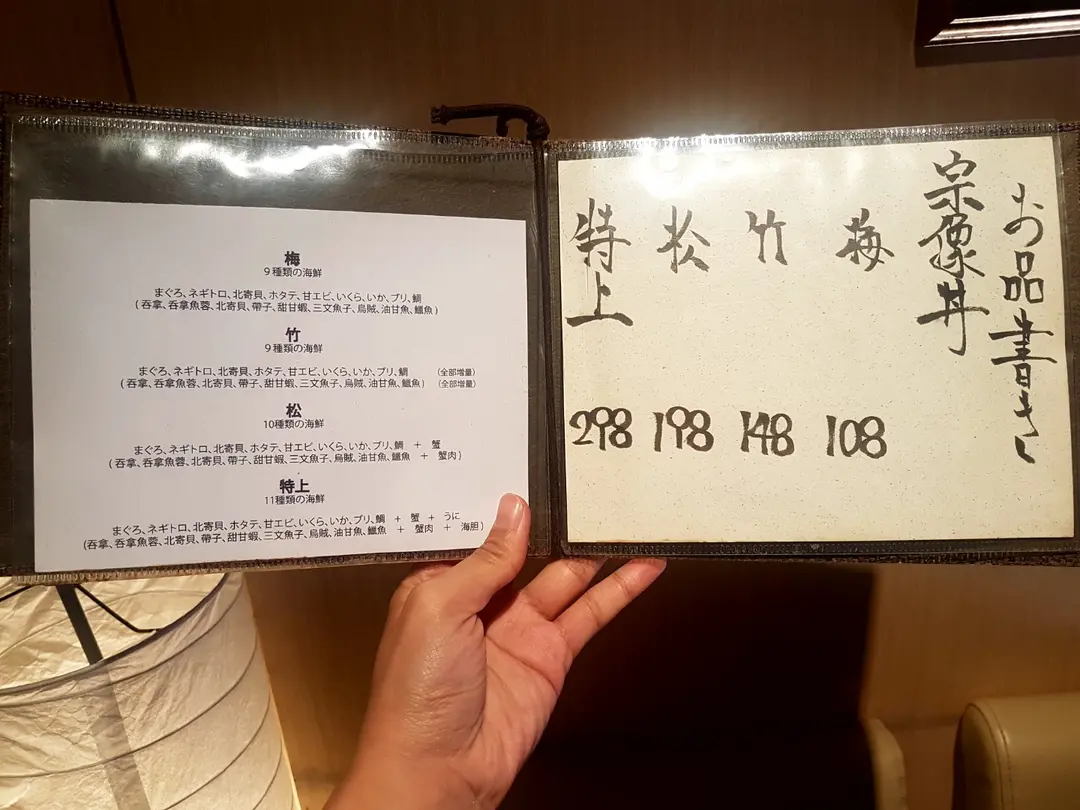 梅
9種類の海鮮
まぐろ、ネギトロ、北寄貝、ホタテ、甘エビ、いくら、いか、ブリ、鯛
(吞拿、吞拿魚蓉、北寄貝、帶子、甜甘蝦、三文魚子、烏賊、油甘魚、鱲魚)
竹
9種類の海鮮
まぐろ、ネギトロ、北寄貝、ホタテ、甘エビ、いくら、いか、ブリ、鯛 (全部增量)
(吞拿、吞拿魚蓉、北寄貝、帶子、甜甘蝦、三文魚子、烏賊、油甘魚、鱲魚) (全部增量)
松
10種類の海鮮
まぐろ、ネギトロ、北寄貝、ホタテ、甘エビ、いくら、いか、ブリ、鯛 + 蟹
(吞拿、吞拿魚蓉、北寄貝、帶子、甜甘蝦、三文魚子、烏賊、油甘魚、鱲魚 + 蟹肉)
特上
11種類の海鮮
まぐろ、ネギトロ、北寄貝、ホタテ、甘エビ、いくら、いか、ブリ、鯛 + 蟹 + うに
(吞拿、吞拿魚蓉、北寄貝、帶子、甜甘蝦、三文魚子、烏賊、油甘魚、鱲魚 + 蟹肉 + 海胆)
お品書き
宗像丼
梅 108
竹 148
松 198
特上 298